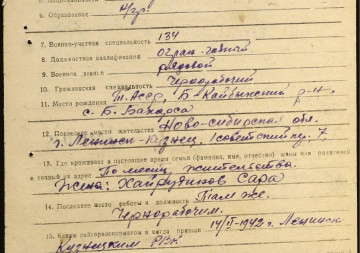 6. Образование н/гр.
7. Военно-учетная специальность 134
8. Должностная квалификация огран. годный
9. Военное звание рядовой
10. Гражданская специальность Чернорабочий
11. Место рождения Т. АССР, Б-Кайбыжский р-н,
с. Б-
12. Последнее место жительства Ново-Сибирская обл.
г. Ленинск-Кузнец, 1 советский пер. 7
13. Где проживает в настоящее время семья (фамилия, имя, отчество) жены или родителей
и точный их адрес По месту жительства.
Жена: Хайрутинов Сара
14. Последнее место работы и должность Там же.
Чернорабочим.
15. Каким райвоенкоматом и когда призван 14/II-1942 г. Ленинск
Кузнецким РВК